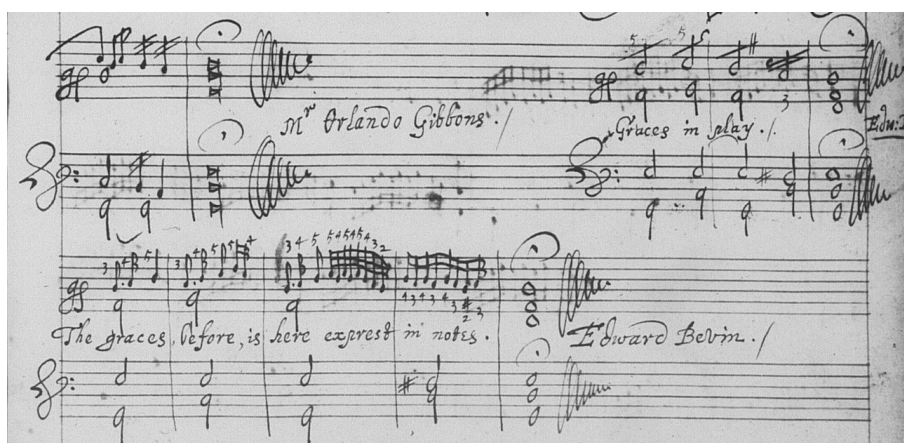 Mr Orlando Gibbons . /
Graces in play . /
Edw:
The graces, before, is here exprest in notes .
Edward Bevin . /